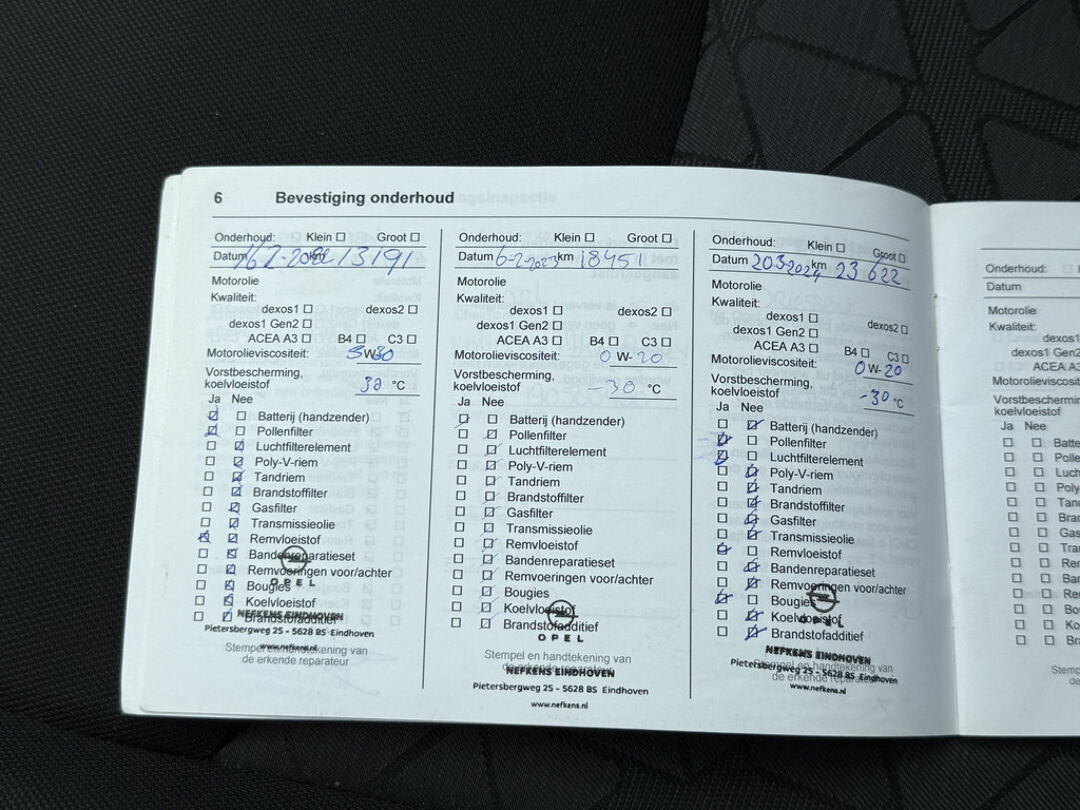 6 Bevestiging onderhoud
Onderhoud: Klein Groot
Datum 16-2-2022 km 13191
Motorolie
Kwaliteit:
dexos1 dexos2
dexos1 Gen2
ACEA A3 B4 C3
Motorolieviscositeit: 5W30
Vorstbescherming,
koelvloeistof 32 °C
Ja Nee
Batterij (handzender)
Pollenfilter
Luchtfilterelement
Poly-V-riem
Tandriem
Brandstoffilter
Gasfilter
Transmissieolie
Remvloeistof
Bandenreparatieset
Remvoeringen voor/achter
OPEL
Bougies
Koelvloeistof
Brandstofadditief
NEFKENS EINDHOVEN
Pietersbergweg 25 - 5628 BS Eindhoven
www.nefkens.nl
Stempel en handtekening van
de erkende reparateur
Onderhoud: Klein Groot
Datum 6-2-2023 km 18451
Motorolie
Kwaliteit:
dexos1 dexos2
dexos1 Gen2
ACEA A3 B4 C3
Motorolieviscositeit: 0 W-20
Vorstbescherming,
koelvloeistof -30 °C
Ja Nee
Batterij (handzender)
Pollenfilter
Luchtfilterelement
Poly-V-riem
Tandriem
Brandstoffilter
Gasfilter
Transmissieolie
Remvloeistof
Bandenreparatieset
Remvoeringen voor/achter
Bougies
Koelvloeistof
Brandstofadditief
OPEL
Stempel en handtekening van
de erkende reparateur
NEFKENS EINDHOVEN
Pietersbergweg 25 - 5628 BS Eindhoven
www.nefkens.nl
Onderhoud: Klein Groot
Datum 203-2024 km 23622
Motorolie
Kwaliteit:
dexos1 dexos2
dexos1 Gen2
ACEA A3 B4 C3
Motorolieviscositeit: 0 W-20
Vorstbescherming,
koelvloeistof -30 °C
Ja Nee
Batterij (handzender)
Pollenfilter
Luchtfilterelement
Poly-V-riem
Tandriem
Brandstoffilter
Gasfilter
Transmissieolie
Remvloeistof
Bandenreparatieset
Remvoeringen voor/achter
Bougies
Koelvloeistof
OPEL
Brandstofadditief
NEFKENS EINDHOVEN
Stempel en handtekening van
de erkende reparateur
Pietersbergweg 25 - 5628 BS Eindhoven
www.nefkens.nl
Onderhoud:
Datum
Motorolie
Kwaliteit:
dexos1
dexos1 Gen2
ACEA A3
Motorolieviscositeit
Vorstbescherming
koelvloeistof
Ja Nee